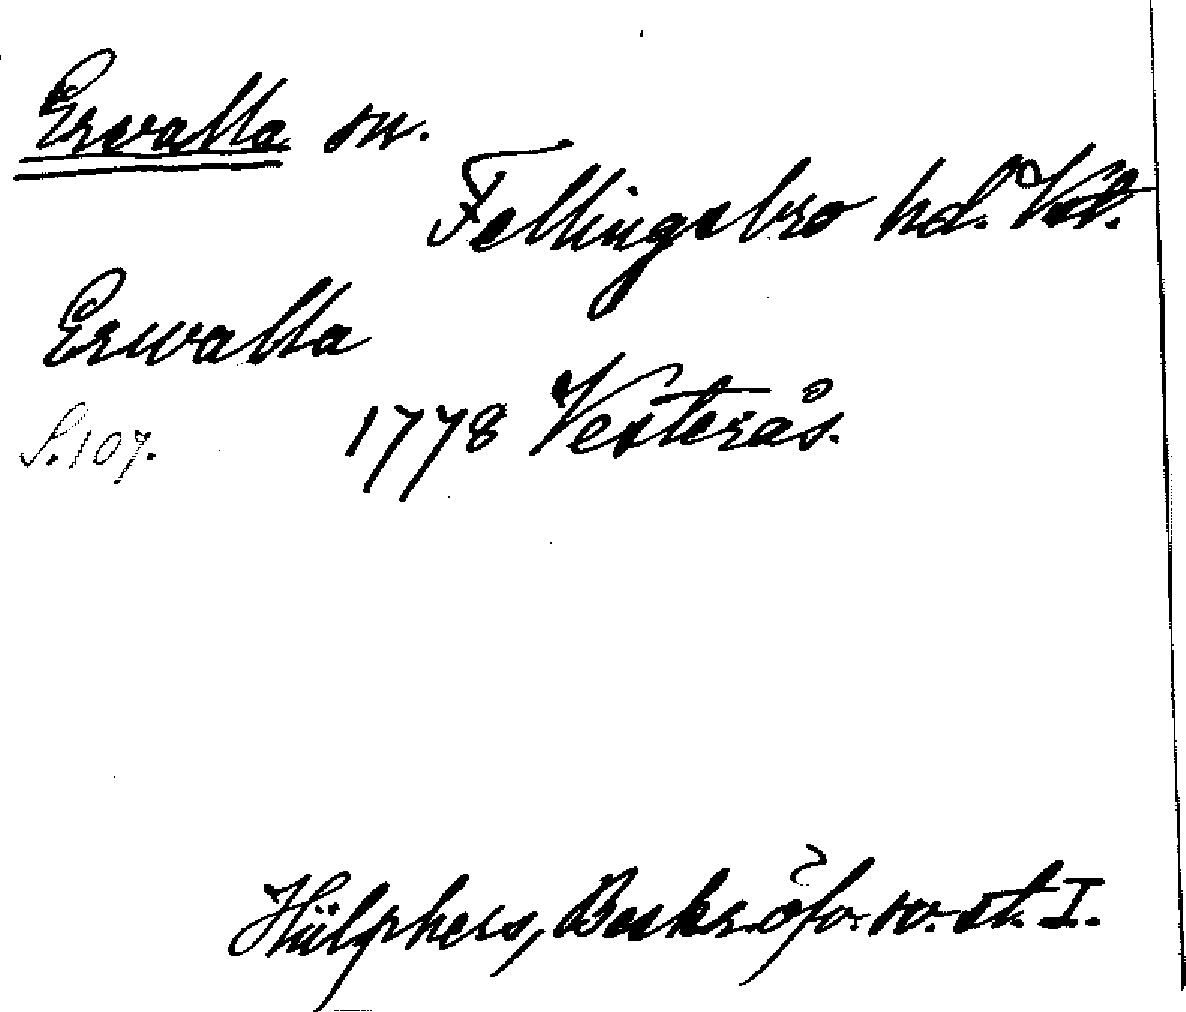 Ervalla sn.
Fellingsbro hd. Vstl.
Erwalla
S. 107. 1778 Vesterås.
Hülphers, Beskr. öfv. sv. st. I.